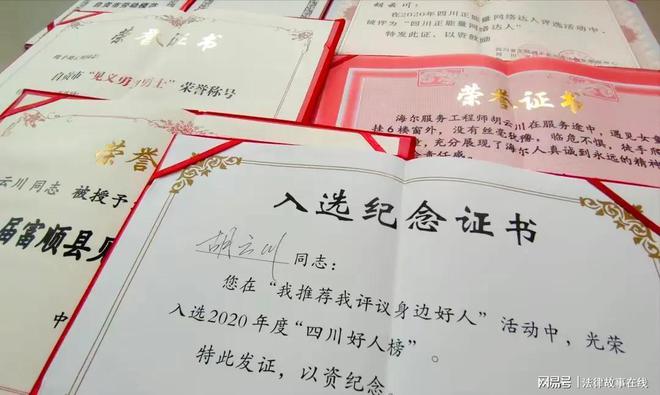 胡云川
在2020年四川正能量网络达人评选活动中,
被评为“四川正能量网络达人”
特发此证,以资鼓励
荣誉证书
自贡市“见义勇 勇士”荣誉称号
荣誉证书
海尔服务工程师胡云川在服务途中,遇见女童
挂6楼窗外,没有丝毫犹豫,临危不惧,徒手爬
充分展现了海尔人真诚到永远的精神
责任感。
荣誉
云川同志 被授予
届富顺县见
中
入选纪念证书
胡云川同志:
您在“我推荐我评议身边好人”活动中,光荣
入选2020年度“四川好人榜”。
特此发证,以资纪念。
网易号 | 法律故事在线